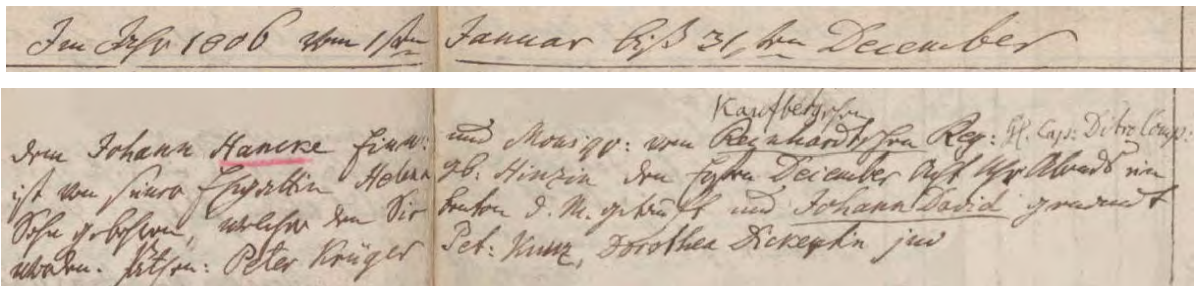 Im Jahr 1806 vom 1sten Januar biß 31sten December
Kaufbergschen
Dem Johann Hancke Einw: und Mousqu: vom Reinhardtschen Reg: H. Cap: Comp:
ist von seiner Ehegattin Helena gb: Hinzin den Ersten December Acht Uhr Abends ein
Sohn gebohren, welcher den Siebenten d. M. getauft und Johann David genannt
worden. Pathen: Peter Krüger Pet: Kunz, Dorothea